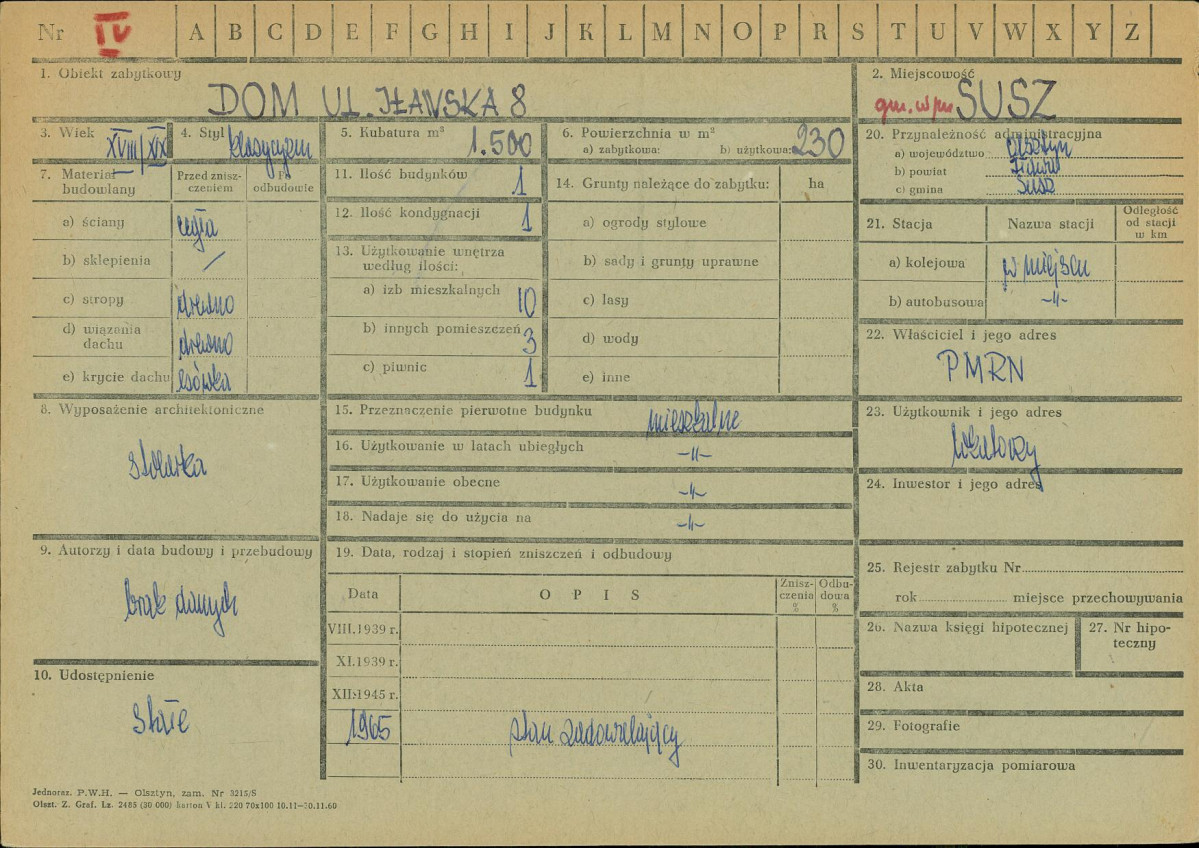 Nr IV A B C D E F G H I J K L M N O P R S T U V W X Y Z
1. Obiekt zabytkowy
DOM UL. IŁAWSKA 8
2. Miejscowość
SUSZ
3. Wiek XVIII/XIX
4. Styl klasycyzm
5. Kubatura m³ 1.500
6. Powierzchnia w m²
a) zabytkowa: b) użytkowa: 230
20. Przynależność administracyjna
a) województwo Olsztyn
b) powiat Iława
c) gmina Susz
7. Materiał budowlany
Przed znisz-
czeniem
Po
odbudowie
a) ściany cegła
b) sklepienia /
c) stropy drewno
d) wiązania
dachu drewno
e) krycie dachu esówka
11. Ilość budynków 1
12. Ilość kondygnacji 1
13. Użytkowanie wnętrza
według ilości:
a) izb mieszkalnych 10
b) innych pomieszczeń 3
c) piwnic 1
14. Grunty należące do zabytku: ha
a) ogrody stylowe
b) sady i grunty uprawne
c) lasy
d) wody
e) inne
21. Stacja Nazwa stacji
Odległość
od stacji
w km
a) kolejowa w miejscu
b) autobusowa -"-
22. Właściciel i jego adres
PMRN
8. Wyposażenie architektoniczne
stolarka
15. Przeznaczenie pierwotne budynku mieszkalne
16. Użytkowanie w latach ubiegłych -"-
17. Użytkowanie obecne -"-
18. Nadaje się do użycia na -"-
23. Użytkownik i jego adres
lokatorzy
24. Inwestor i jego adres
9. Autorzy i data budowy i przebudowy
brak danych
19. Data, rodzaj i stopień zniszczeń i odbudowy
Data OPIS
Znisz-
czenia
%
Odbu-
dowa
%
VIII.1939 r.
XI.1939 r.
XII.1945 r.
1965 stan zadowalający
10. Udostępnienie
stałe
25. Rejestr zabytku Nr
rok miejsce przechowywania
26. Nazwa księgi hipotecznej
27. Nr hipo-
teczny
28. Akta
29. Fotografie
30. Inwentaryzacja pomiarowa
Jednoraz. P.W.H. — Olsztyn, zam. Nr 3215/S
Olszt. Z. Graf. Lz. 2485 (30 000) karton V kl. 220 70x100 10.11—30.11.60